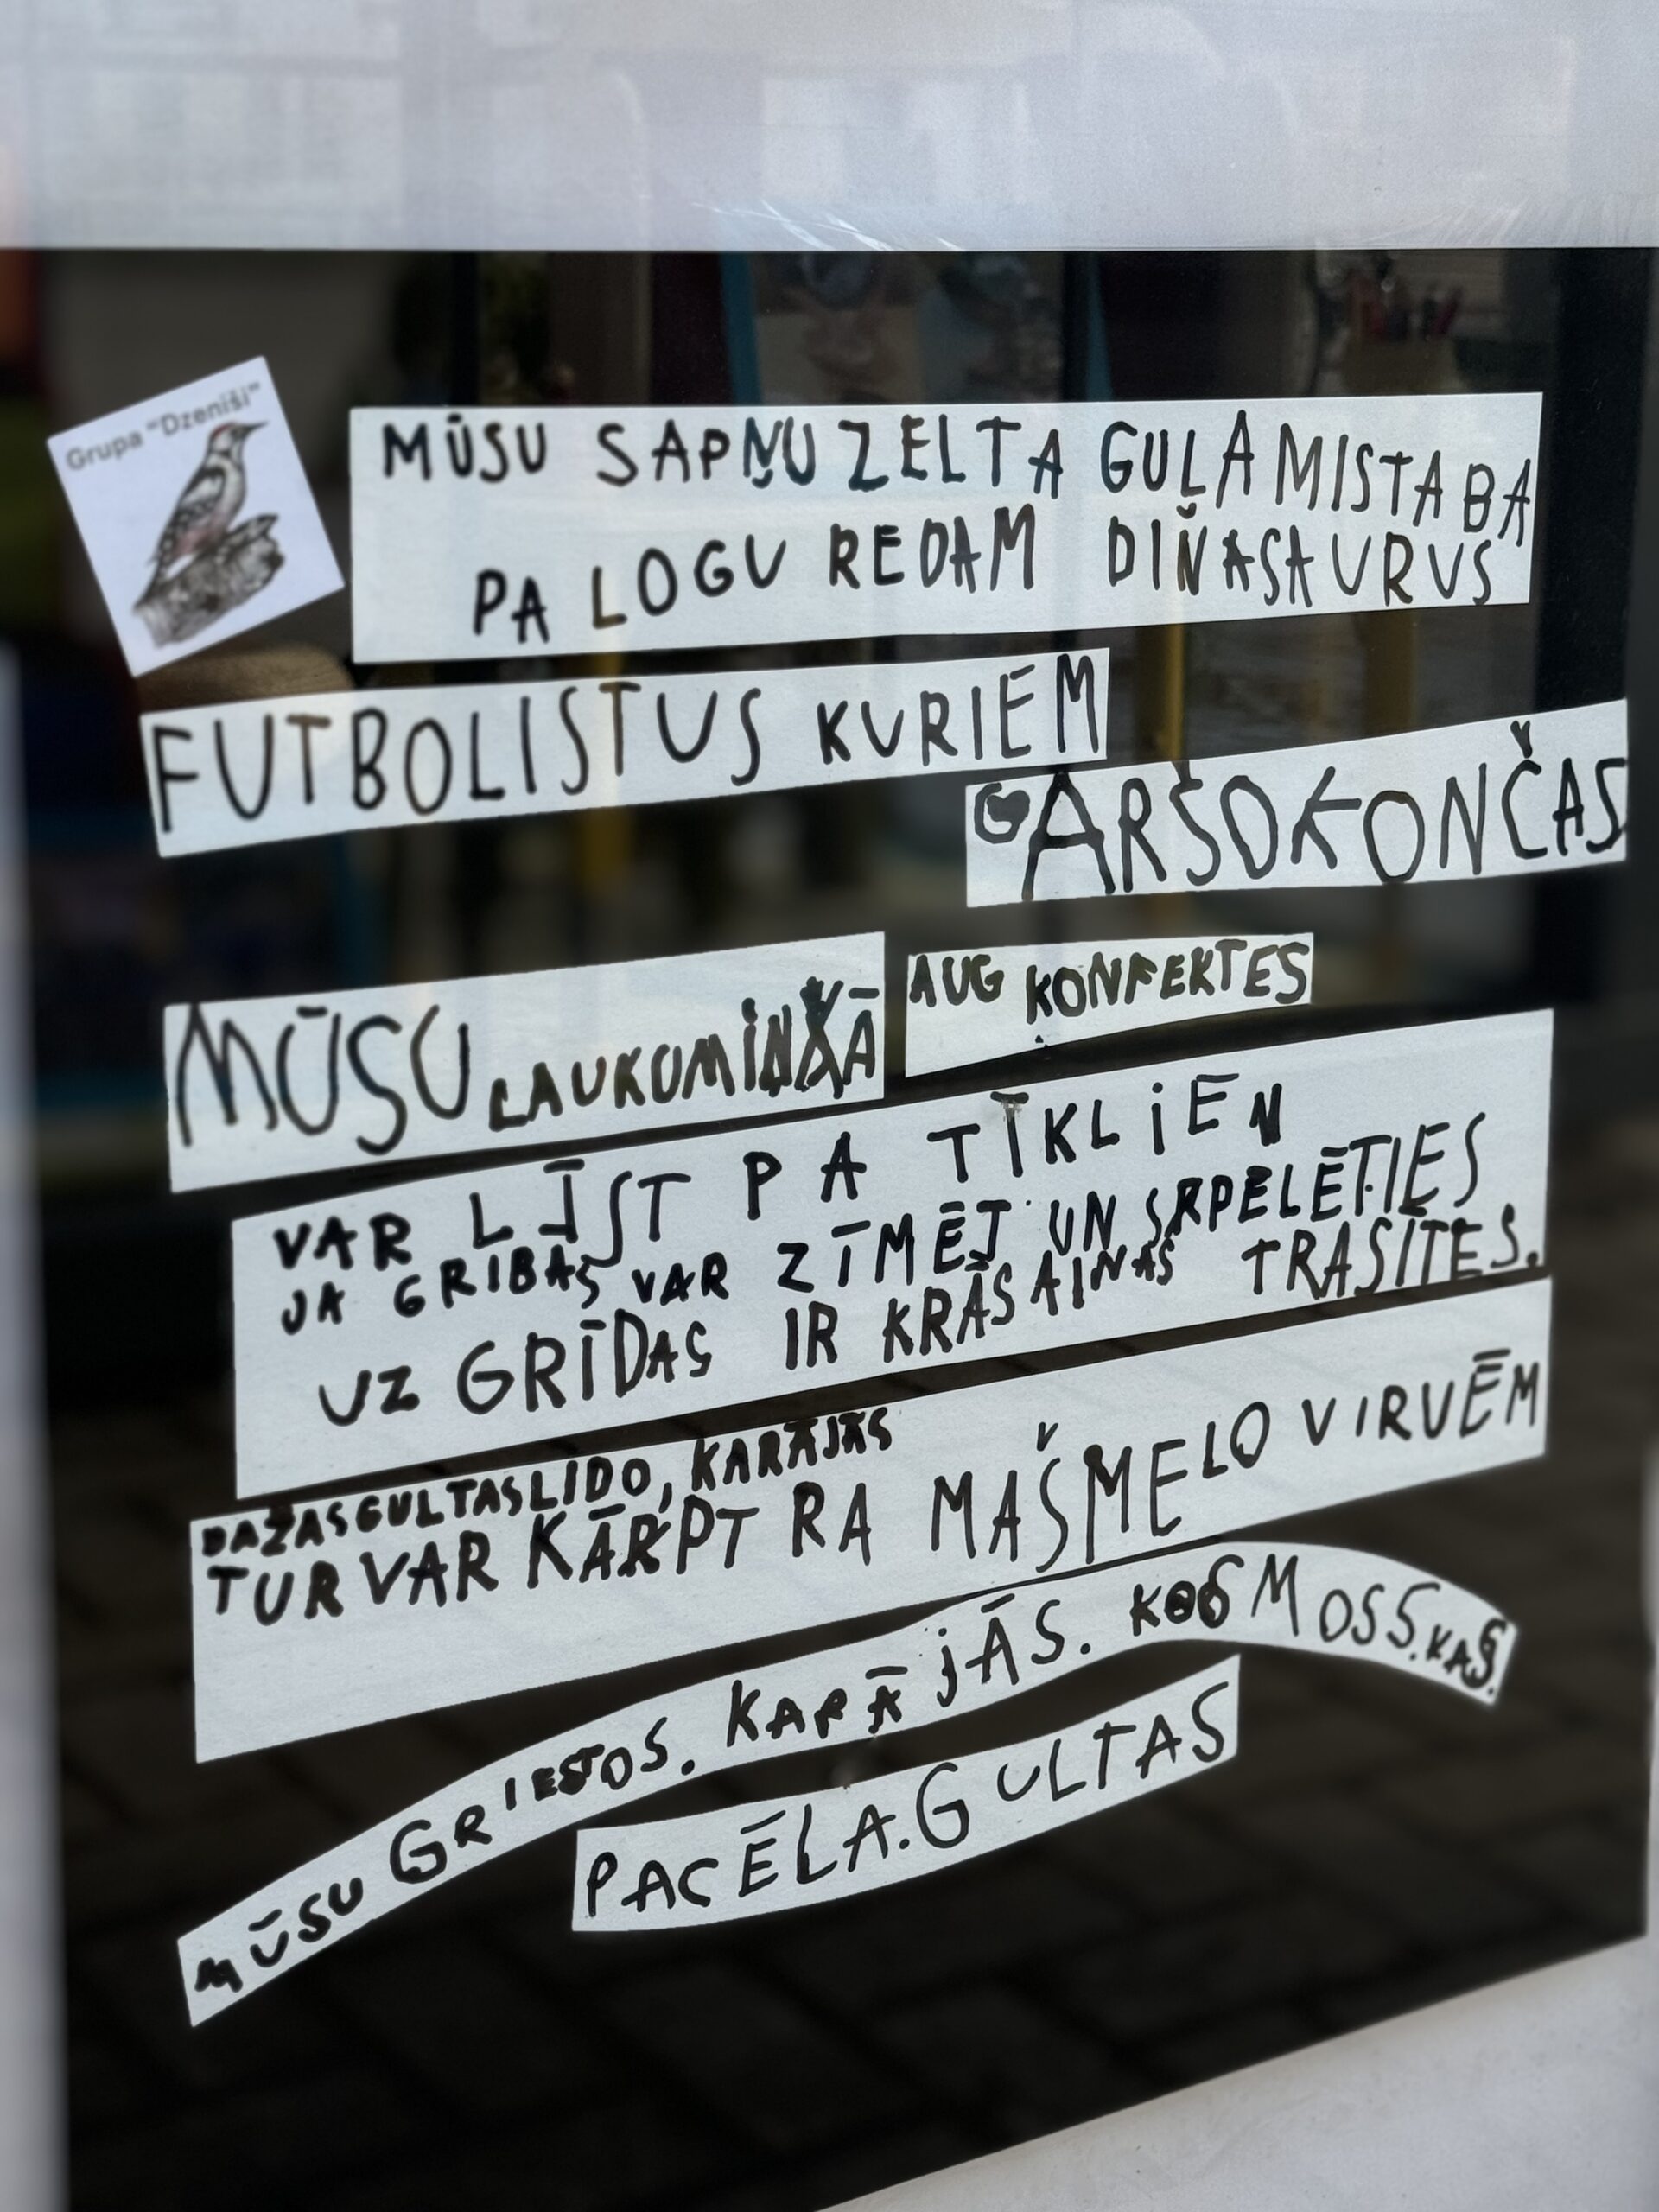 Grupa "Dzenīši"
MŪSU SAPŅU ZELTA GUĻAMISTABA
PA LOGU REDAM DIŇASAURUS
FUTBOLISTUS KURIEM
GARŠO KONČAS
MŪSU LAUKUMIŅĀ
AUG KONFEKTES
VAR LĪST PA TĪKLIEN
JA GRIBAS VAR ZĪMĒT UN SRPELĒTIES
UZ GRĪDAS IR KRĀSAINAS TRASĪTES.
DAŽAS GULTAS LIDO, KARĀJĀS
TUR VAR KĀRPT RA MAŠMELO VIRVĒM
MŪSU GRIESTOS. KARĀJĀS. KOSMOSS. KAS.
PACĒLA. GULTAS